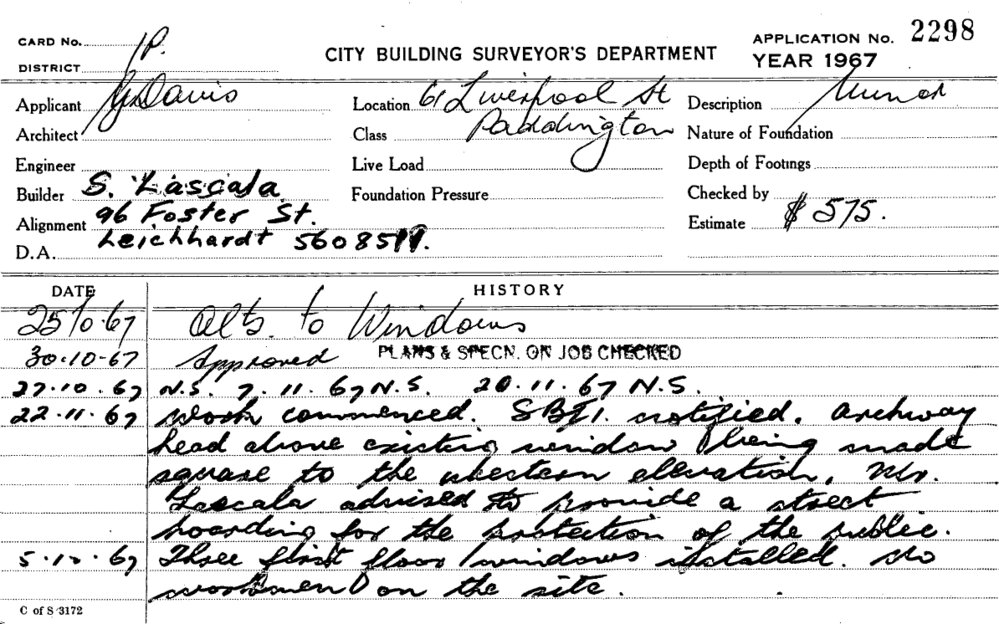 CARD No. 1P.
DISTRICT
CITY BUILDING SURVEYOR'S DEPARTMENT
APPLICATION No. 2298
YEAR 1967
Applicant G. Davis
Architect
Engineer
Builder S. Lascala
Alignment 96 Foster St.
D.A. Leichhardt
Location 61 Liverpool St
Class Paddington
Live Load
Foundation Pressure
Description Minor
Nature of Foundation
Depth of Footings
Checked by
Estimate $ 575.
DATE HISTORY
25/10.67 Alts. to Windows
30.10.67 Approved PLANS & SPECN. ON JOB CHECKED
27.10.67 N.S. 7.11.67 N.S. 20.11.67 N.S.
22.11.67 Work commenced. notified. Archway
head above existing window being made
square to the western elevation, Mr.
Lascala advised to provide a street
hoarding for the protection of the public.
5.12.67 Three first floor windows installed. No
workmen on the site.
C of S 3172